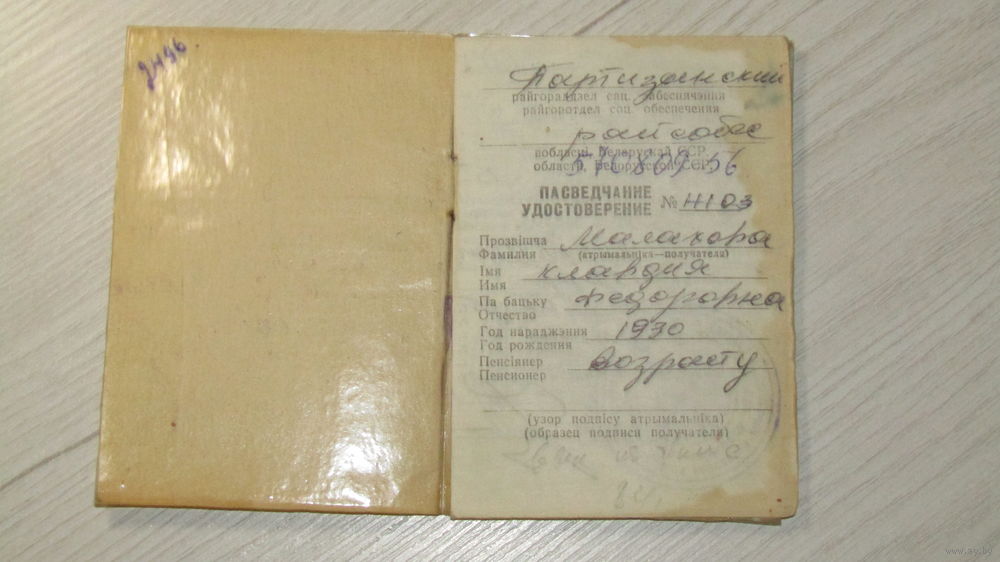 2496
Партизанский
райгораддзел сац. забеспячэння
райгоротдел соц. обеспечения
райсобес
вобласці, Беларускай ССР
области, Белорусской ССР
ПАСВЕДЧАННЕ
УДОСТОВЕРЕНИЕ № 4103
Прозвішча Малахова
Фамилия (атрымальніка—получателя)
Імя Клавдия
Имя
Па бацьку Федоровна
Отчество
Год нараджэння 1930
Год рождения
Пенсіянер возрасту
Пенсионер
(узор подпісу атрымальніка)
(образец подписи получателя)
www.ay.by